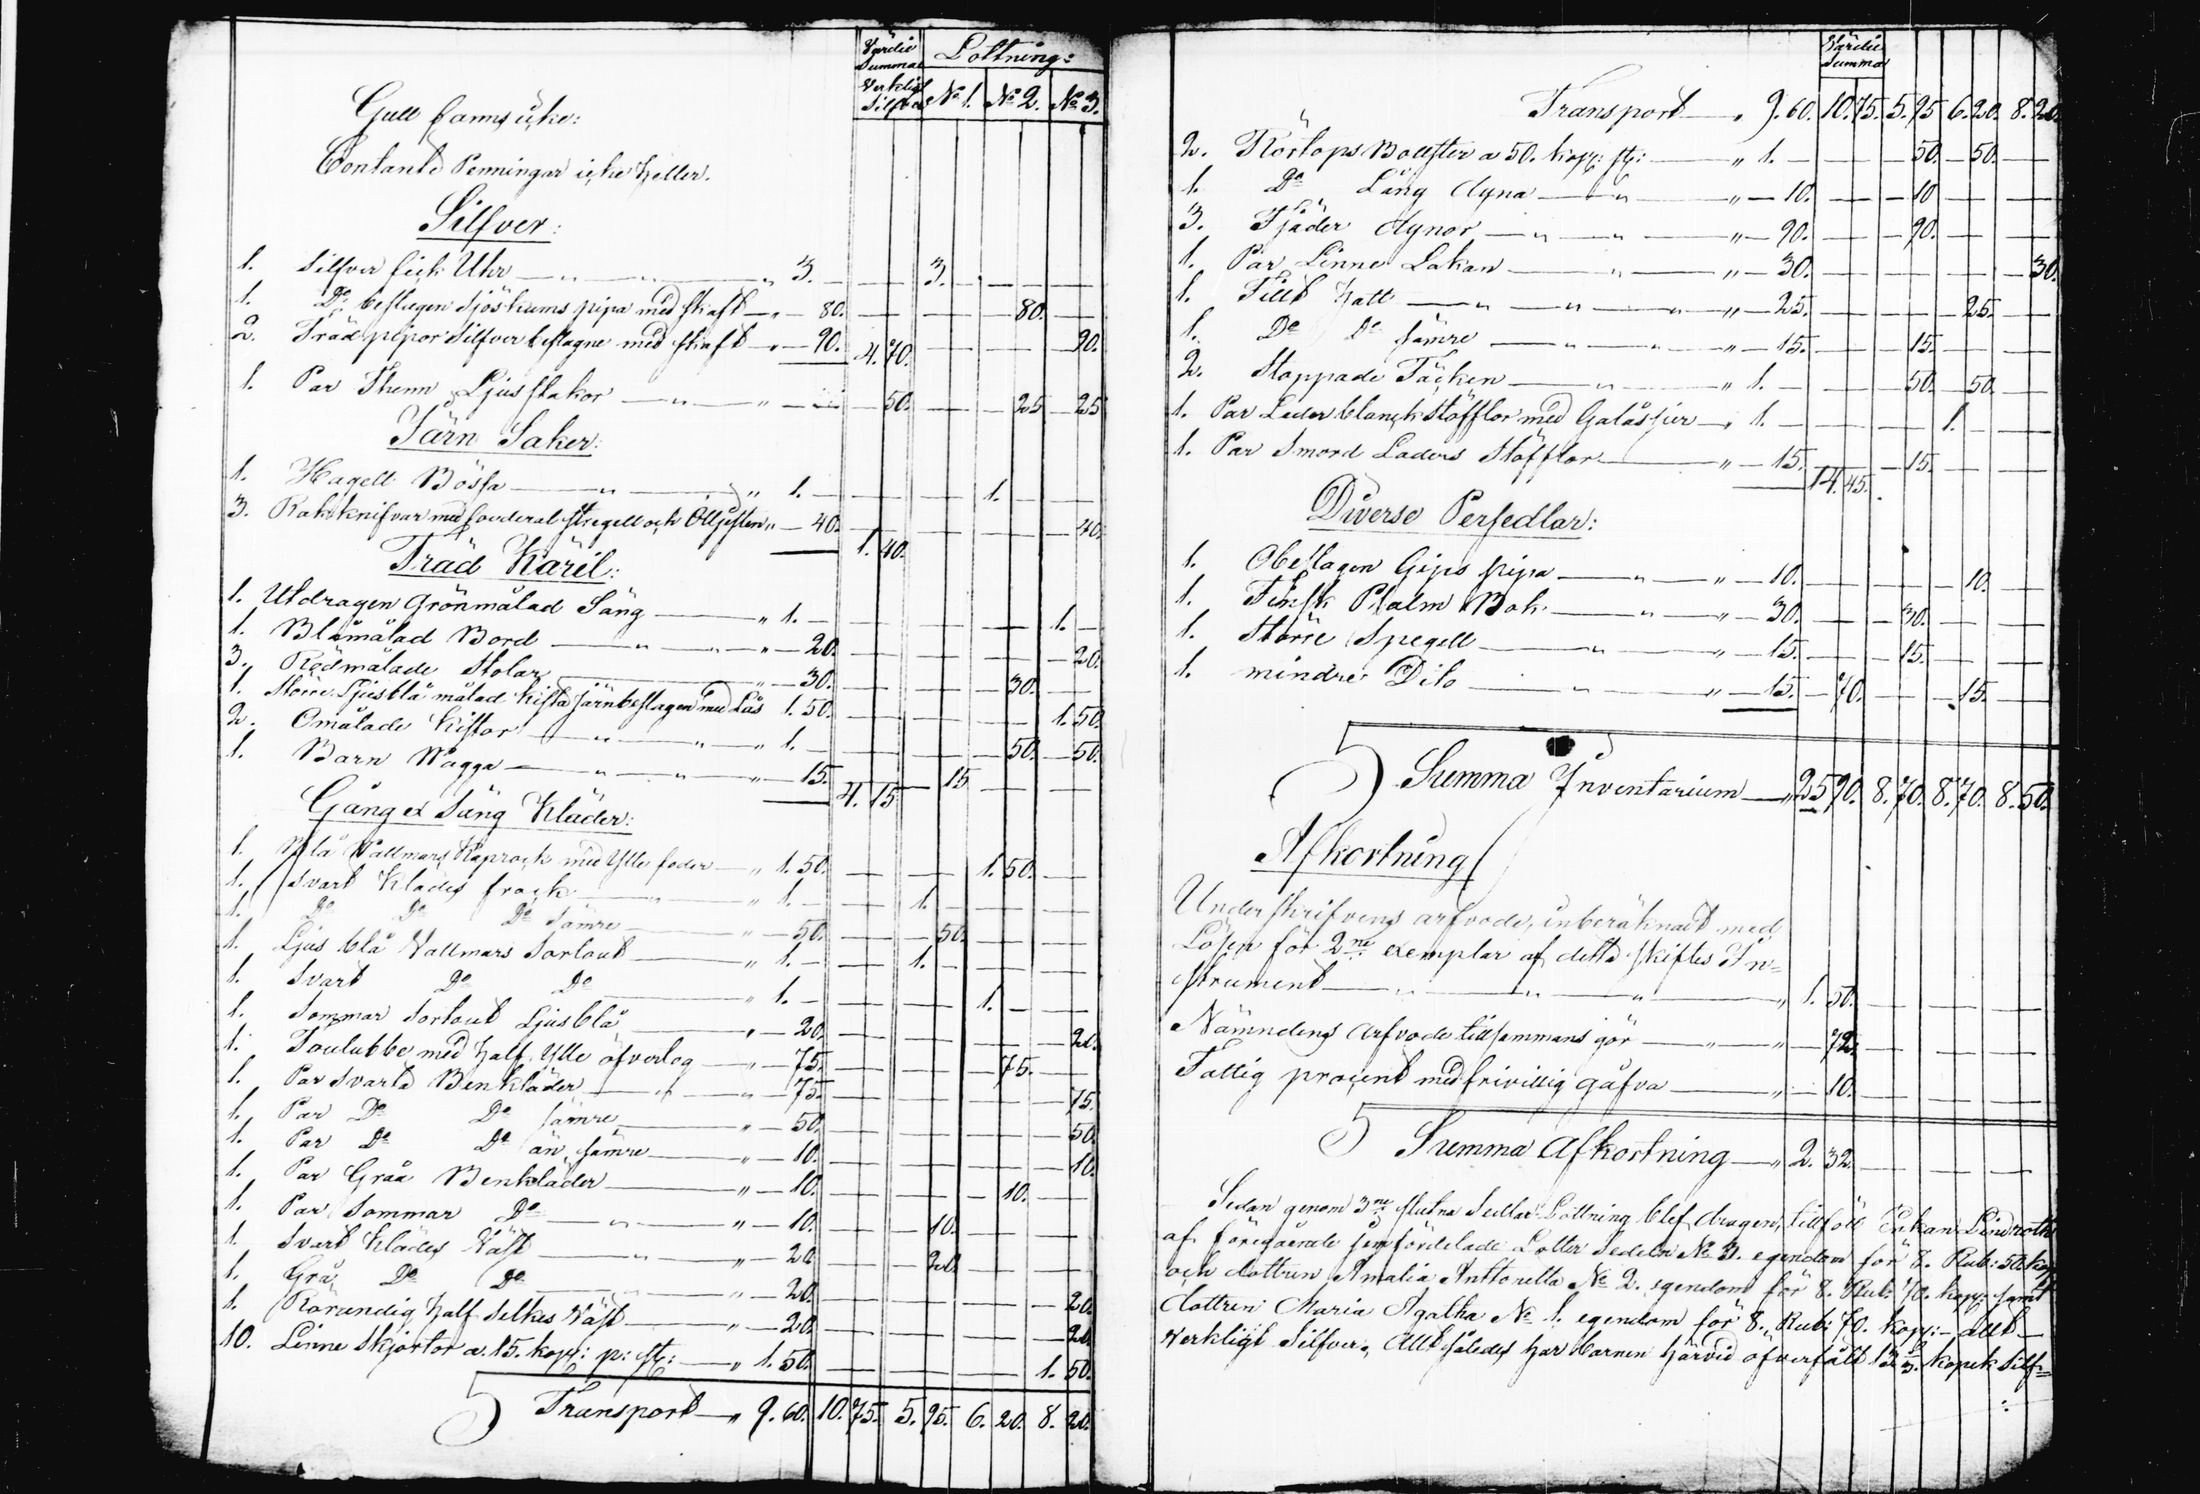 Värdie Summa Lottning:
Verkligt Silfver No 1. No 2. No 3.
Gull fanns icke:
Contante Penningar icke heller.
Silfver:
1. Silfver fick Uhr — " — " — " 3. — — 3. — —
1. Do beslagen Sjöskums pipa med skaft — " — 80. — — 80. —
2. Träd pipor Silfver beslagne med skaft — " — 90. 4. 70. — — 90.
1. Par Thenn Ljusstakor — " — " — 50. — 25 — 25
Järn Saker:
1. Hagell Bössa — " — " 1. — — 1. —
3. Rakknifvar med fouderal stregell och Olljesten " — 40. 1. 40. — — 40.
Träd Käril:
1. Utdragen Grönmålad Säng — " 1. — — — 1. —
1. Blåmålad Bord — " — " — " — 20. — — 20.
3. Rödmålade Stolar — " — 30. — — 30. —
1. Större Ljusblå målad Kista Järnbeslagen med Lås 1. 50. — — 1. 50.
2. Omålade Kistor — " — " — " 1. — — 50. — 50.
1. Barn Wagga — " — " — " — 15. 4. 15 — 15 — —
Gång et Säng Kläder:
1. Blå Vallmars Kaprock med Ylle foder — " 1. 50. — — 1. 50. —
1. Svart Klädes frack — " — " 1. — — 1. — —
1. Do Do Do sämre — " — 50. — 50. — —
1. Ljus blå Vallmars Sortout — " 1. — — 1. — —
1. Svart Do Do — " 1. — — — 1. —
1. Sommar Sortout Ljusblå — " — 20. — — 20.
1. Toulubbe med half Ylle öfverlag — " — 75. — — 75. —
1. Par svarta Benkläder — " — " — 75. — — 75.
1. Par Do Do sämre — " — 50. — — 50.
1. Par Do Do än sämre — " — 10. — — 10.
1. Par Gråa Benkläder — " — 10. — — 10. —
1. Par Sommar Do — " — " — 10. — 10. — —
1. Svart Klädes Väst — " — " — 20 — 20 — —
1. Grå Do Do — " — 20. — — 20.
1. Rörandig half Silkes Väst — " — 20. — — 20.
10. Linne Skjortor a. 15. kop: p: st: — " 1. 50. — — 1. 50.
Transport — " 9. 60. 10. 75. 5. 95. 6. 20. 8. 20.
Värdie Summa
Transport — " 9. 60. 10. 75. 5. 95 6. 20. 8. 20.
2. Rörtops Bollster a 50. kop: st: — " 1. — — 50. — 50. —
1. Do Lång dyna — " — " — 10. — — 10 — —
3. Fjäder dynor — " — " — " — 90. — — 90. — —
1. Par Linne Lakan — " — " — 30. — — — 30.
1. Filt hatt — " — " — " — " — 25. — — 25. —
1. Do Do sämre — " — " — " — 15. — — 15. — —
2. Stoppade Täcken — " — " 1. — — 50. — 50. —
1. Par Leder blanck Stöfflor med Galåsjer — " 1. — — — 1. —
1. Par Smord Läders Stöfflor — " — 15. 14. 45. — 15. — —
Diverse Persedlar:
1. Obeslagen Gips pipa — " — " — 10. — — 10. —
1. Finsk Psalm Bok — " — " — 30. — — 30. — —
1. Större Spegell — " — " — 15. — — 15. — —
1. mindre Dito — " — " — 15. — 70. — — 15. —
Summa Inventarium — " 25 90. 8. 70. 8. 70. 8. 50.
Afkortning
Underskrifvens arfvode, inberäknadt med
Lösen för 2ne exemplar af detta skiftes In=
strument — " — " — " — " 1. 50. — —
Nämndens arfvode tillsammans gör — " — " — 72. — —
Fattig procent med frivillig gåfva — " — 10. — —
Summa Afkortning — " 2. 32. — —
Sedan genom 3ne slutna Sedlar Lottning blef dragen, tillföll Enkan Lindroth
af föregående jemfördelade Lotter Sedeln No 3. egendom för 8. Rub: 50. kop
och dottren Amalia Anttonetta No 2. egendom för 8. Rub: 70. kop: samt
dottren Maria Agatha No 1. egendom för 8. Rub: 70. kop: — allt —
verkligt Silfver, Allt således har Barnen härvid öfverfått 13 1/3. kopek Silf=